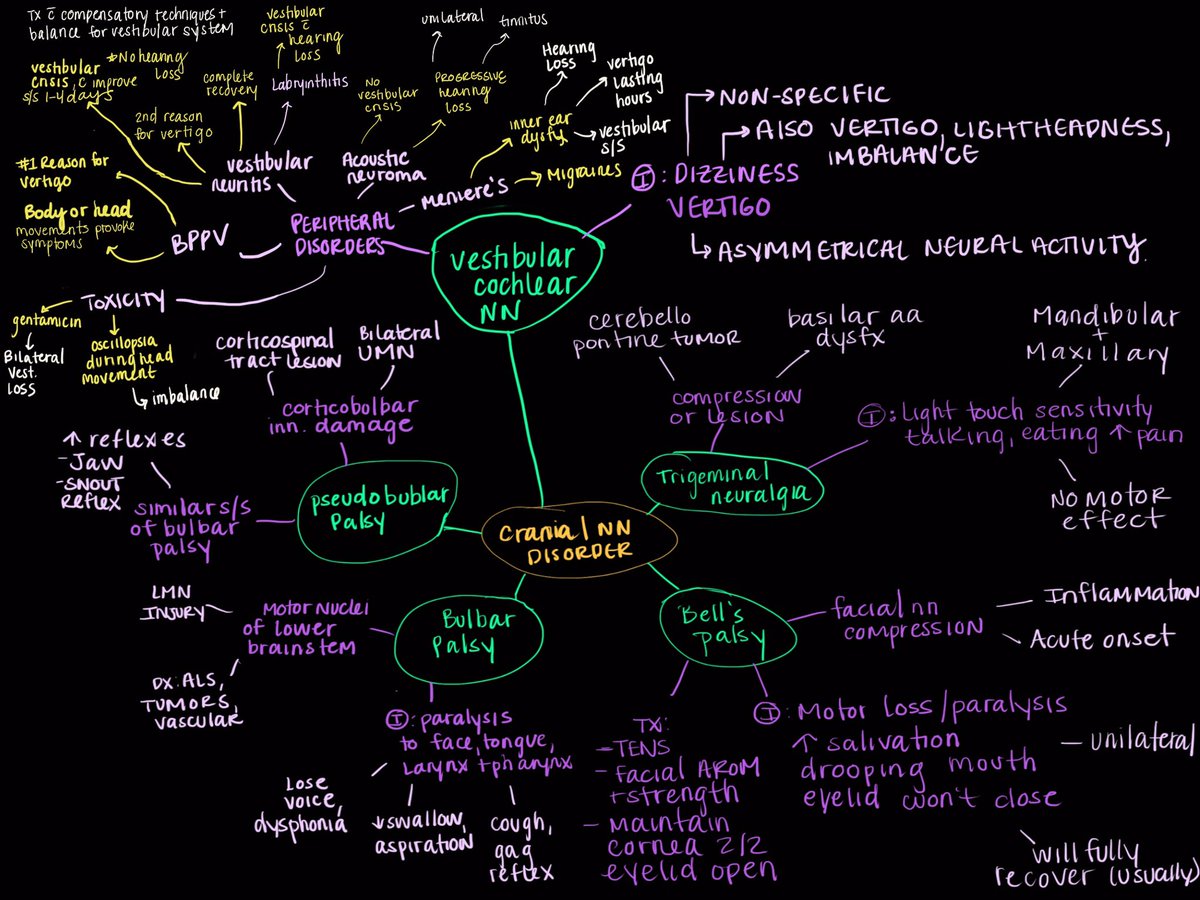 TX c̄ compensatory techniques +
balance for vestibular system
vestibular
crisis, c̄ improve
s/s 1-4 days
*No hearing
Loss
complete
recovery
2nd reason
for vertigo
vestibular
crisis c̄
hearing
loss
Labrynthitis
vestibular
neuritis
unilateral
tinnitus
NO
vestibular
crisis
PROGRESSIVE
hearing
loss
Acoustic
neuroma
Hearing
LOSS
vertigo
lasting
hours
inner ear
dysfx
vestibular
s/s
Migraines
Meniere's
#1 Reason for
vertigo
Body or head
movements provoke
symptoms
BPPV
PERIPHERAL
DISORDERS
TOXICITY
gentamicin
Bilateral
Vest.
LOSS
oscillopsia
during head
movement
imbalance
vestibular
cochlear
NN
NON-SPECIFIC
ALSO VERTIGO, LIGHTHEADNESS,
IMBALANCE
I: DIZZINESS
VERTIGO
ASYMMETRICAL NEURAL ACTIVITY
corticospinal
tract lesion
Bilateral
UMN
corticobolbar
inn. damage
↑ reflexes
-Jaw
-SNOUT
reflex
similar s/s
of bulbar
palsy
pseudobublar
Palsy
cerebello
pontine tumor
basilar aa
dysfx
compression
or LESION
Trigeminal
neuralgia
Mandibular
+
Maxillary
I: Light touch sensitivity
talking, eating ↑ pain
NO MOTOR
effect
Cranial NN
DISORDER
LMN
INJURY
Motor Nuclei
of lower
brainstem
DX: ALS,
TUMORS,
vascular
Bulbar
Palsy
I: paralysis
to face, tongue,
Larynx + pharynx
Lose
voice,
dysphonia
↓swallow,
aspiration
cough,
gag
reflex
Bell's
palsy
facial nn
compression
Inflammation
Acute onset
TX:
-TENS
- facial AROM
+strength
- Maintain
cornea 2/2
eyelid open
I: Motor Loss/paralysis
↑ salivation
drooping mouth
eyelid won't close
- unilateral
will fully
recover (usually)